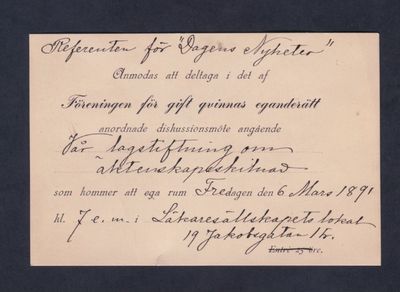 Referenten för "Dagens Nyheter"
Anmodas att deltaga i det af
Föreningen för gift qvinnas eganderätt
anordnade diskussionsmöte angående
Vår lagstiftning om
äktenskapsskilnad
som kommer att ega rum Fredagen den 6 Mars 1891
kl. 7 e. m. i Läkaresällskapets lokal
19 Jakobsgatan 1 tr.
Entré 25 öre.